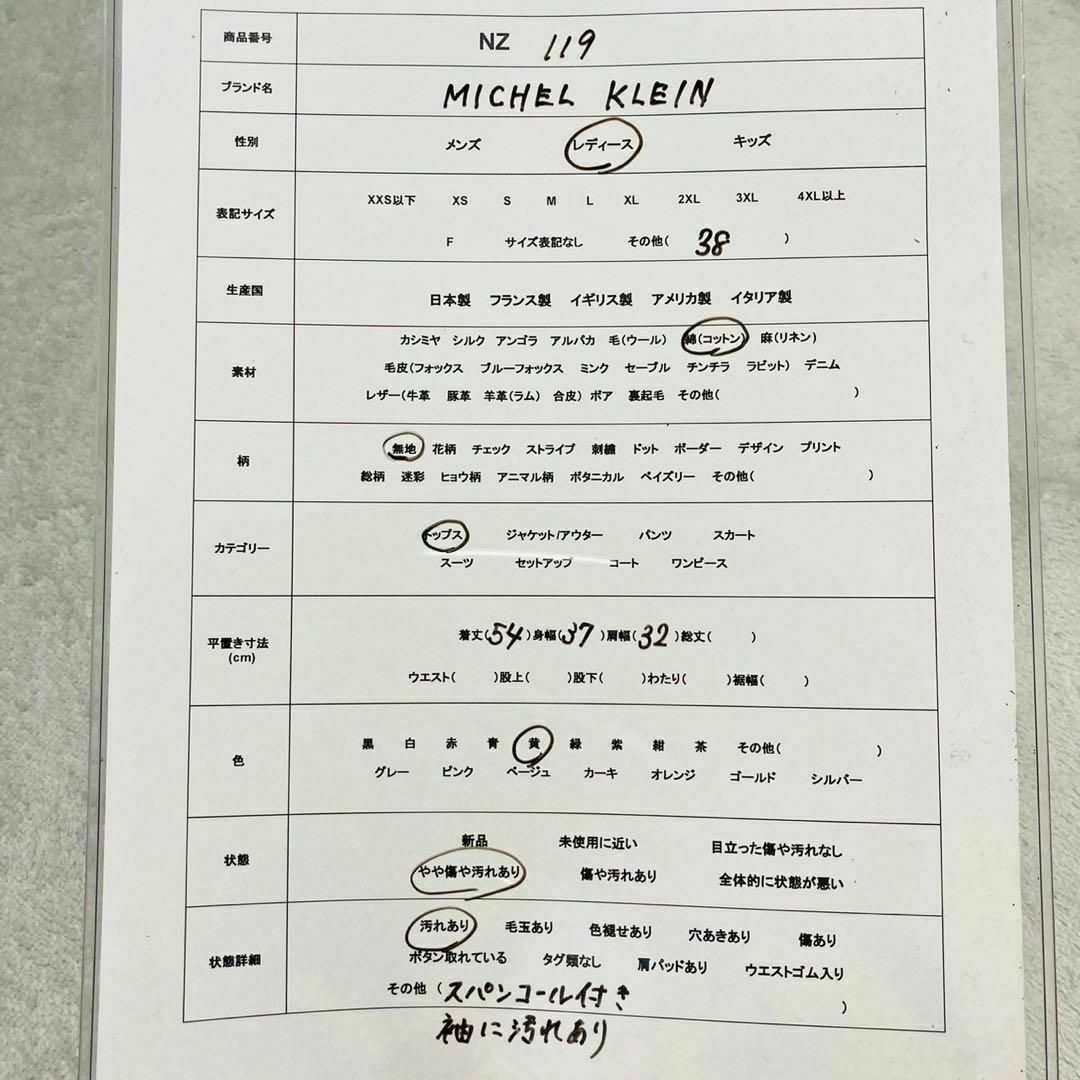 商品番号 NZ 119
ブランド名 MICHEL KLEIN
性別 メンズ レディース キッズ
表記サイズ XXS以下 XS S M L XL 2XL 3XL 4XL以上
F サイズ表記なし その他( 38 )
生産国 日本製 フランス製 イギリス製 アメリカ製 イタリア製
素材 カシミヤ シルク アンゴラ アルパカ 毛(ウール) 綿(コットン) 麻(リネン)
毛皮(フォックス ブルーフォックス ミンク セーブル チンチラ ラビット) デニム
レザー(牛革 豚革 羊革(ラム) 合皮) ボア 裏起毛 その他( )
柄 無地 花柄 チェック ストライプ 刺繍 ドット ボーダー デザイン プリント
総柄 迷彩 ヒョウ柄 アニマル柄 ボタニカル ペイズリー その他( )
カテゴリー トップス ジャケット/アウター パンツ スカート
スーツ セットアップ コート ワンピース
平置き寸法 (cm) 着丈(54)身幅(37)肩幅(32)総丈( )
ウエスト( )股上( )股下( )わたり( )裾幅( )
色 黒 白 赤 青 黄 緑 紫 紺 茶 その他( )
グレー ピンク ベージュ カーキ オレンジ ゴールド シルバー
状態 新品 未使用に近い 目立った傷や汚れなし
やや傷や汚れあり 傷や汚れあり 全体的に状態が悪い
状態詳細 汚れあり 毛玉あり 色褪せあり 穴あきあり 傷あり
ボタン取れている タグ類なし 肩パッドあり ウエストゴム入り
その他 ( スパンコール付き )
袖に汚れあり